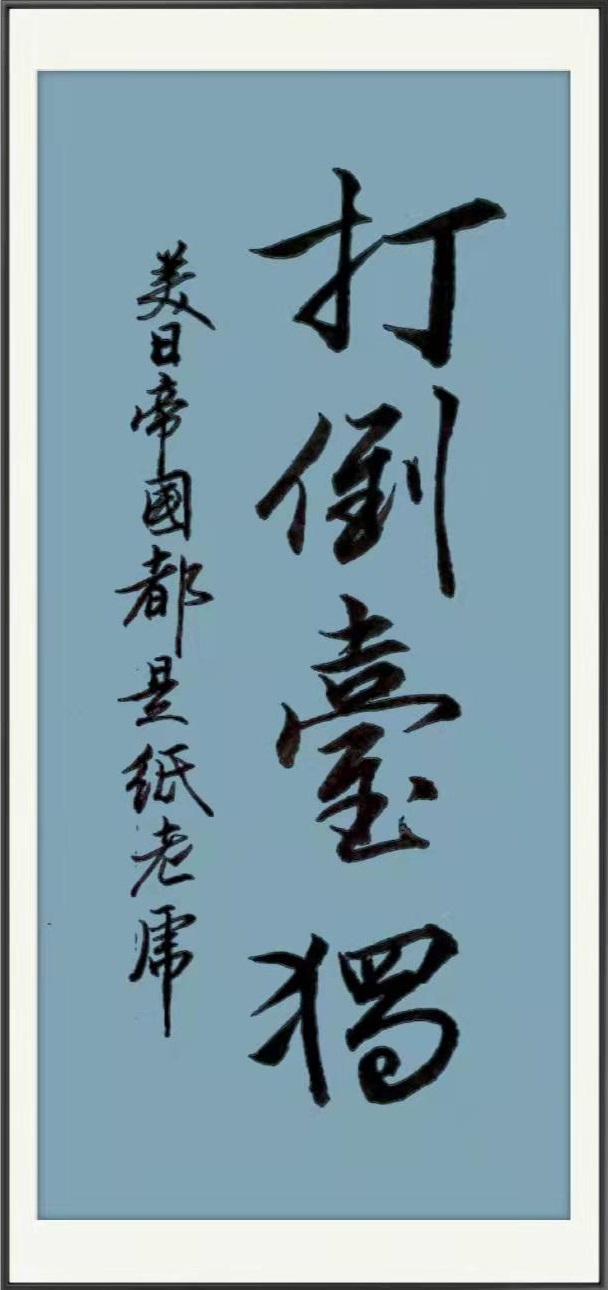 打倒臺獨
美日帝國都是紙老虎